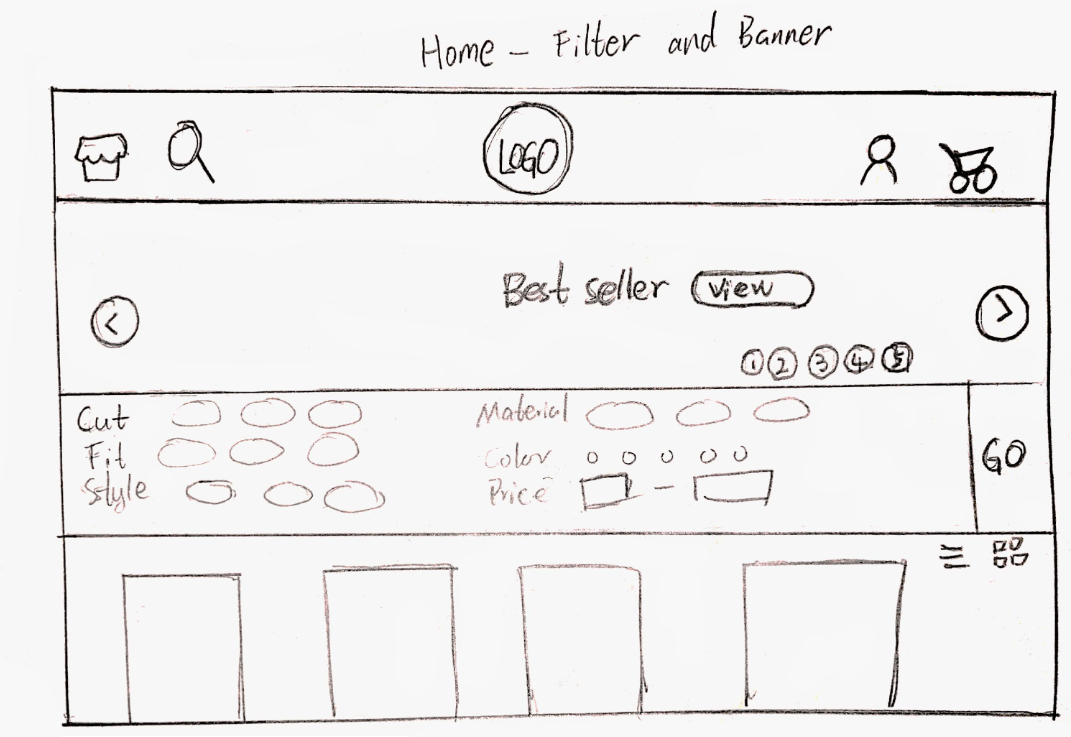 Home - Filter and Banner
LOGO
Best seller view
1 2 3 4 5
Cut
Fit
Style
Material
Color
Price -
GO